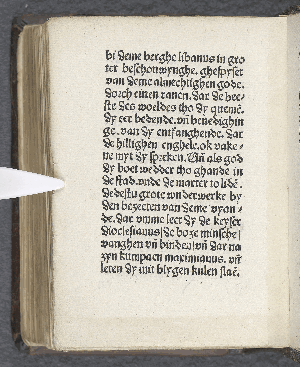 bi deme berghe libanus in gro
ter beschouwynghe. ghespyset
van deme almechtighen gode.
dorch einen rauen. dar de bee-
ste des woeldes tho dy quemē.
dy eer bedende. vñ benedighin
ge. van dy entfanghende. dar
de hillighen enghele. ok vake-
ne myt dy spreken. Vñ als god
dy boet wedder tho ghande in
de stad. vnde de marter to lidē.
dedestu grote wnderwerke by
den beyeeten van deme vyan-
de. dar vmme leet dy de keyser
dioclesianus/de boze minsche/
vanghen vñ binden/vñ dar na
zyn kumpaen maximianus. vñ
leten dy mit blygen kulen slaē.